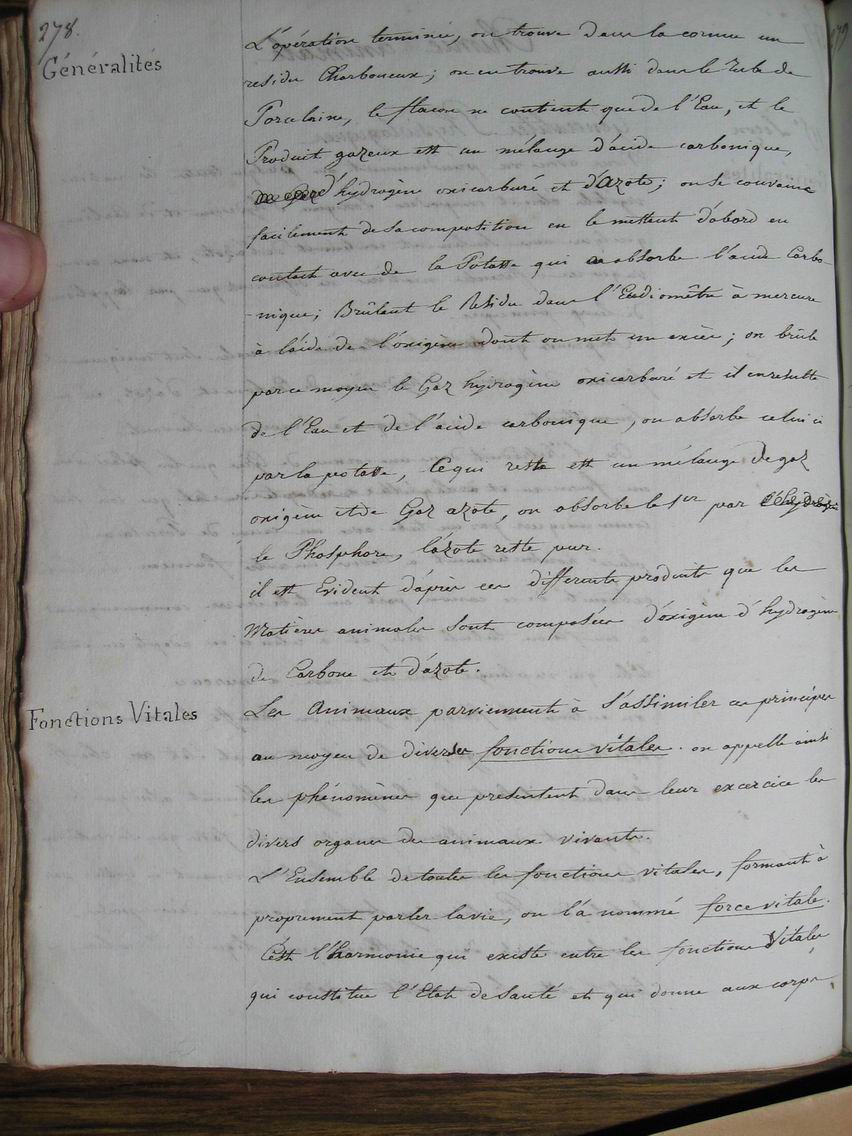 278.
Généralités
L'opération terminée, on trouve dans la cornue un
residu Charboneux; on en trouve aussi dans le Tube de
Porcelaine, le flacon ne contient que de l'Eau, et le
Produit gazeux est un mélange d'acide carbonique,
d'hydrogène oxicarburé et d'azote; on se convainc
facilement de sa composition en le mettent d'abord en
contact avec de la Potasse qui absorbe l'acide Carbo-
-nique; Brûlant le Residu dans l'Eudiomètre à mercure
à l'aide de l'oxigène dont on met un excès; on brûle
par ce moyen le Gaz hydrogène oxicarburé et il en resulte
de l'Eau et de l'acide carbonique, on absorbe celui ci
par la potasse, Ce qui reste est un mélange de gaz
oxigène et de Gaz azote, on absorbe le 1er par
le Phosphore, l'azote reste pur.
il est Evident d'après ces différents produits que les
Matières animales sont composées d'oxigène d'hydrogène
de Carbone et d'azote.
Fonctions Vitales
Les Animaux parviennent à s'assimiler ces principes
au moyen de diverses fonctions vitales. on appelle ainsi
les phénomènes que presentent dans leur excercice les
divers organes des animaux vivants.
L'Ensemble de toutes les fonctions vitales, formant à
proprement parler la vie, on l'a nommé force vitale.
C'est l'harmonie qui existe entre les fonctions Vitales
qui constitue l'Etat de Santé et qui donne aux corps